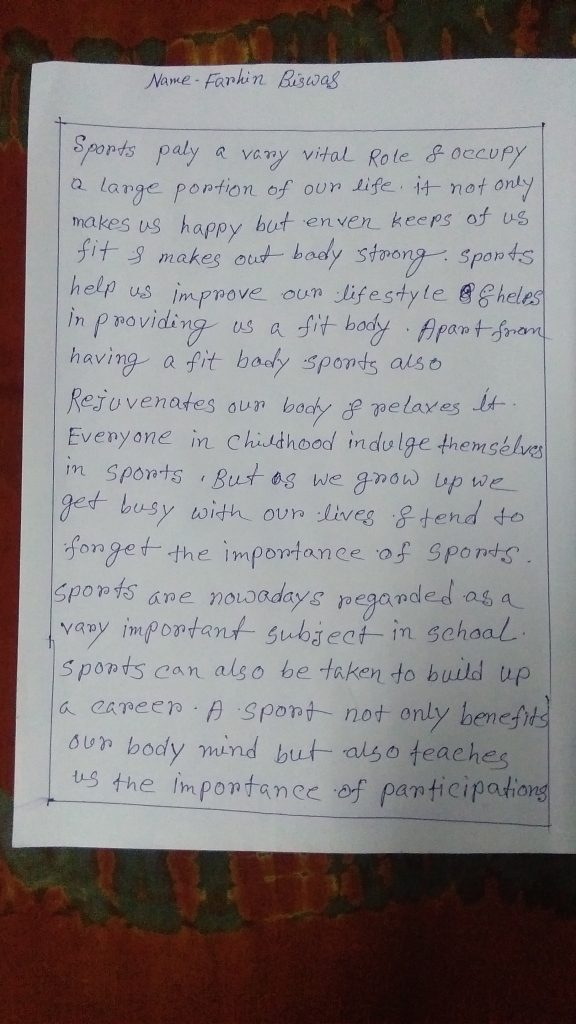 Name - Farhin Biswas
Sports paly a vary vital Role & occupy
a large portion of our life. it not only
makes us happy but enven keeps of us
fit & makes out body strong. Sports
help us improve our lifestyle & heles
in providing us a fit body. Apart from
having a fit body sports also
Rejuvenates our body & relaxes it.
Everyone in childhood indulge themselves
in sports. But as we grow up we
get busy with our lives & tend to
forget the importance of sports.
Sports are nowadays regarded as a
vary important subject in school.
Sports can also be taken to build up
a career. A sport not only benefits
our body mind but also teaches
us the importance of participations